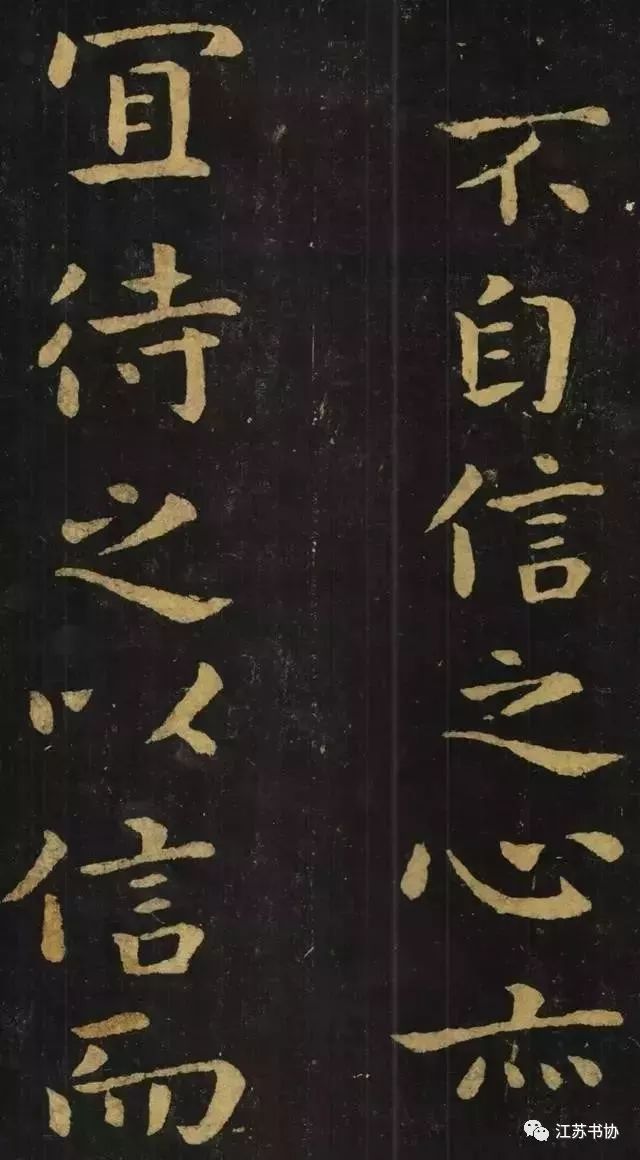 不自信之心亦
宜待之以信而
江苏书协